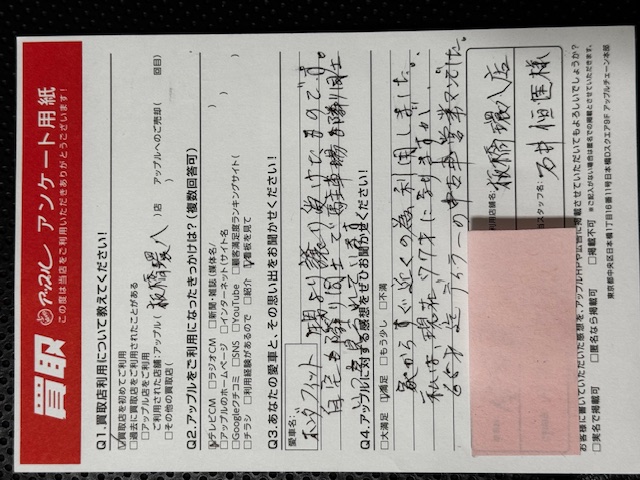 買取 アップル アンケート用紙
この度は当店をご利用いただきありがとうございます！
Q1.買取店利用について教えてください！
☑買取を初めてご利用
□過去に買取店をご利用されたことがある
□アップル店をご利用
ご利用された店舗：アップル（ 板橋環八 ）店 アップルへのご売却（ 回目）
□その他の買取店（ ）
Q2.アップルをご利用になったきっかけは？（複数回答可）
☑テレビCM □ラジオCM □新聞・雑誌（媒体名/ ）
□アップルのホームページ □インターネット（サイト名 ）
□Googleクチコミ □SNS □YouTube □顧客満足度ランキングサイト（ ）
□チラシ □利用経験があるので □紹介 ☑看板を見て
Q3.あなたの愛車と、その思い出をお聞かせください！
愛車名：
ホンダフィット 甥より譲り受けたものです。
自宅も隣り同士で駐車場も隣り同士
Q4.アップルに対する感想をぜひお聞かせください！
□大満足 ☑満足 □もう少し □不満
家からすぐ近くの為利用しました。
私は、現在77才になりますが、
ディラーの中古車営業マンでした。
ご利用店舗名： 板橋環八店
担当スタッフ名： 石井恒匡様
お客様に書いていただいた感想を、アップルHPや広告に掲載させていただいてもよろしいでしょうか？
□実名で掲載可 □匿名なら掲載可 □掲載不可 ※ご記入がない場合は匿名での掲載とさせていただきます。
東京都中央区日本橋1丁目16番11号日本橋Dスクエア9F アップルチェーン本部